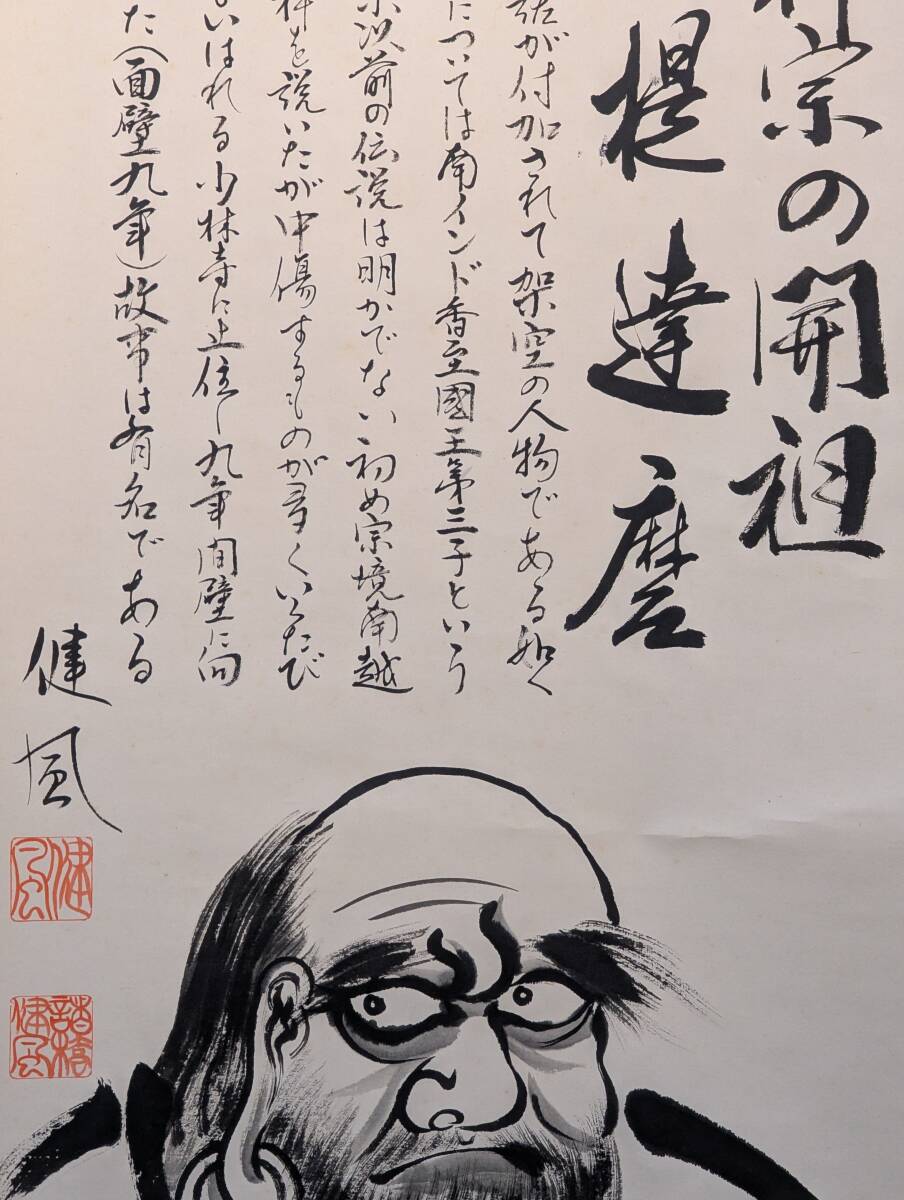 宗の開祖
提達磨
が付加されて架空の人物である如く
については南インド香至國王第三子という
以前の伝説は明かでない初め宗境南越
を説いたが中傷するものが多くいくたび
いはれる少林寺に止住し九年間壁に向
た(面壁九年)故事は有名である
健風
健風
諸橋健風